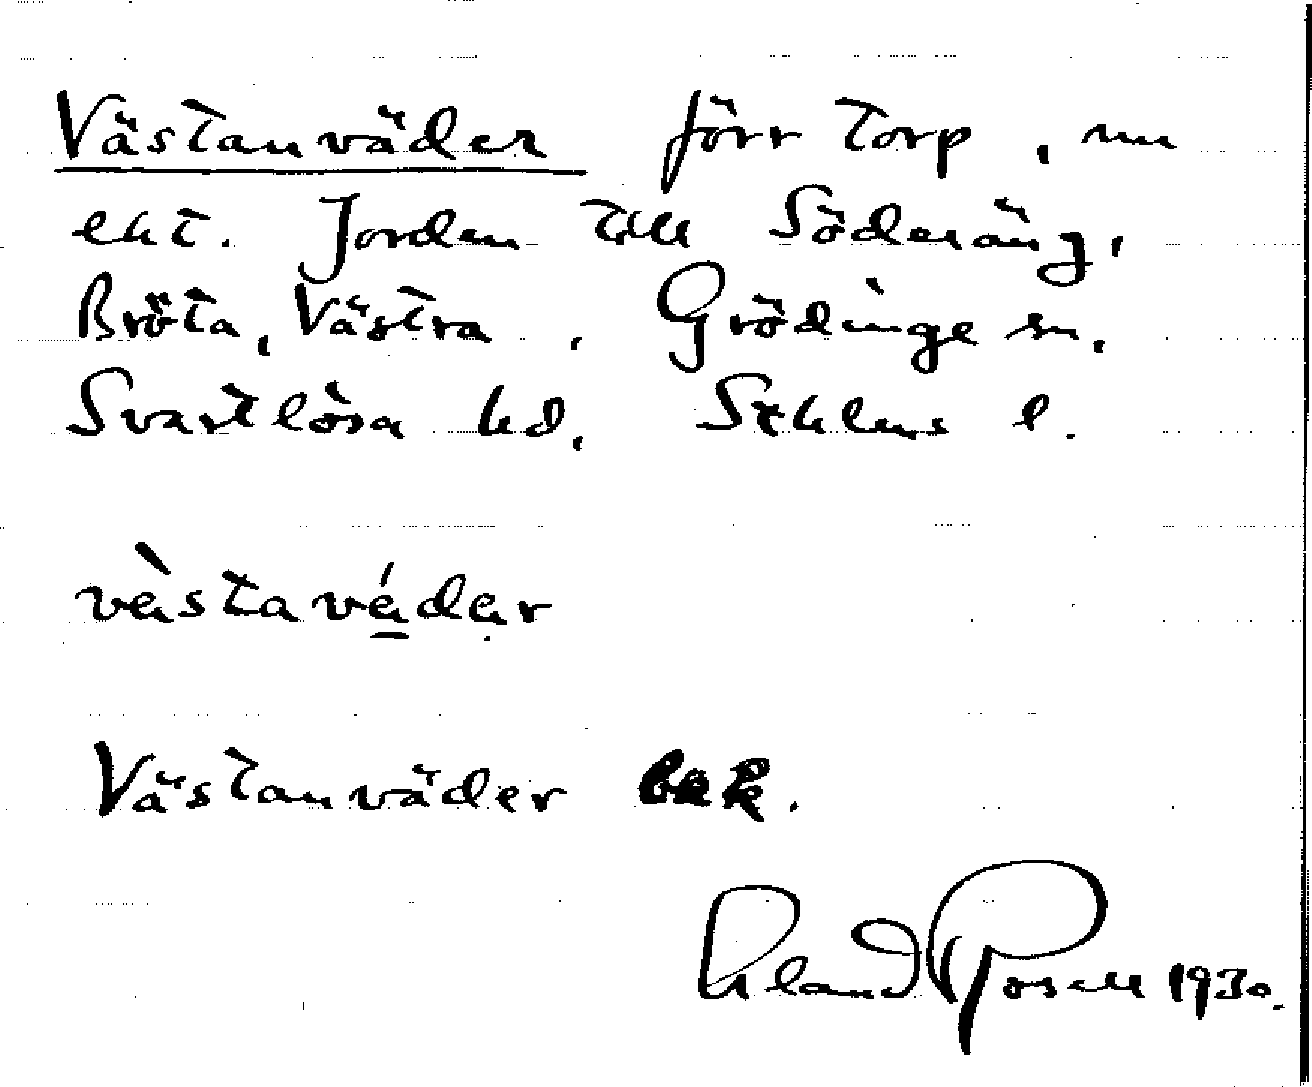 Västanväder förr torp, nu
ekt. Jorden till Söderäng,
Bröta, Västra, Grödinge sn,
Svartlösa hd, Sthlms l.
västavädar
Västanväder bek.
Erland Rosell 1930.